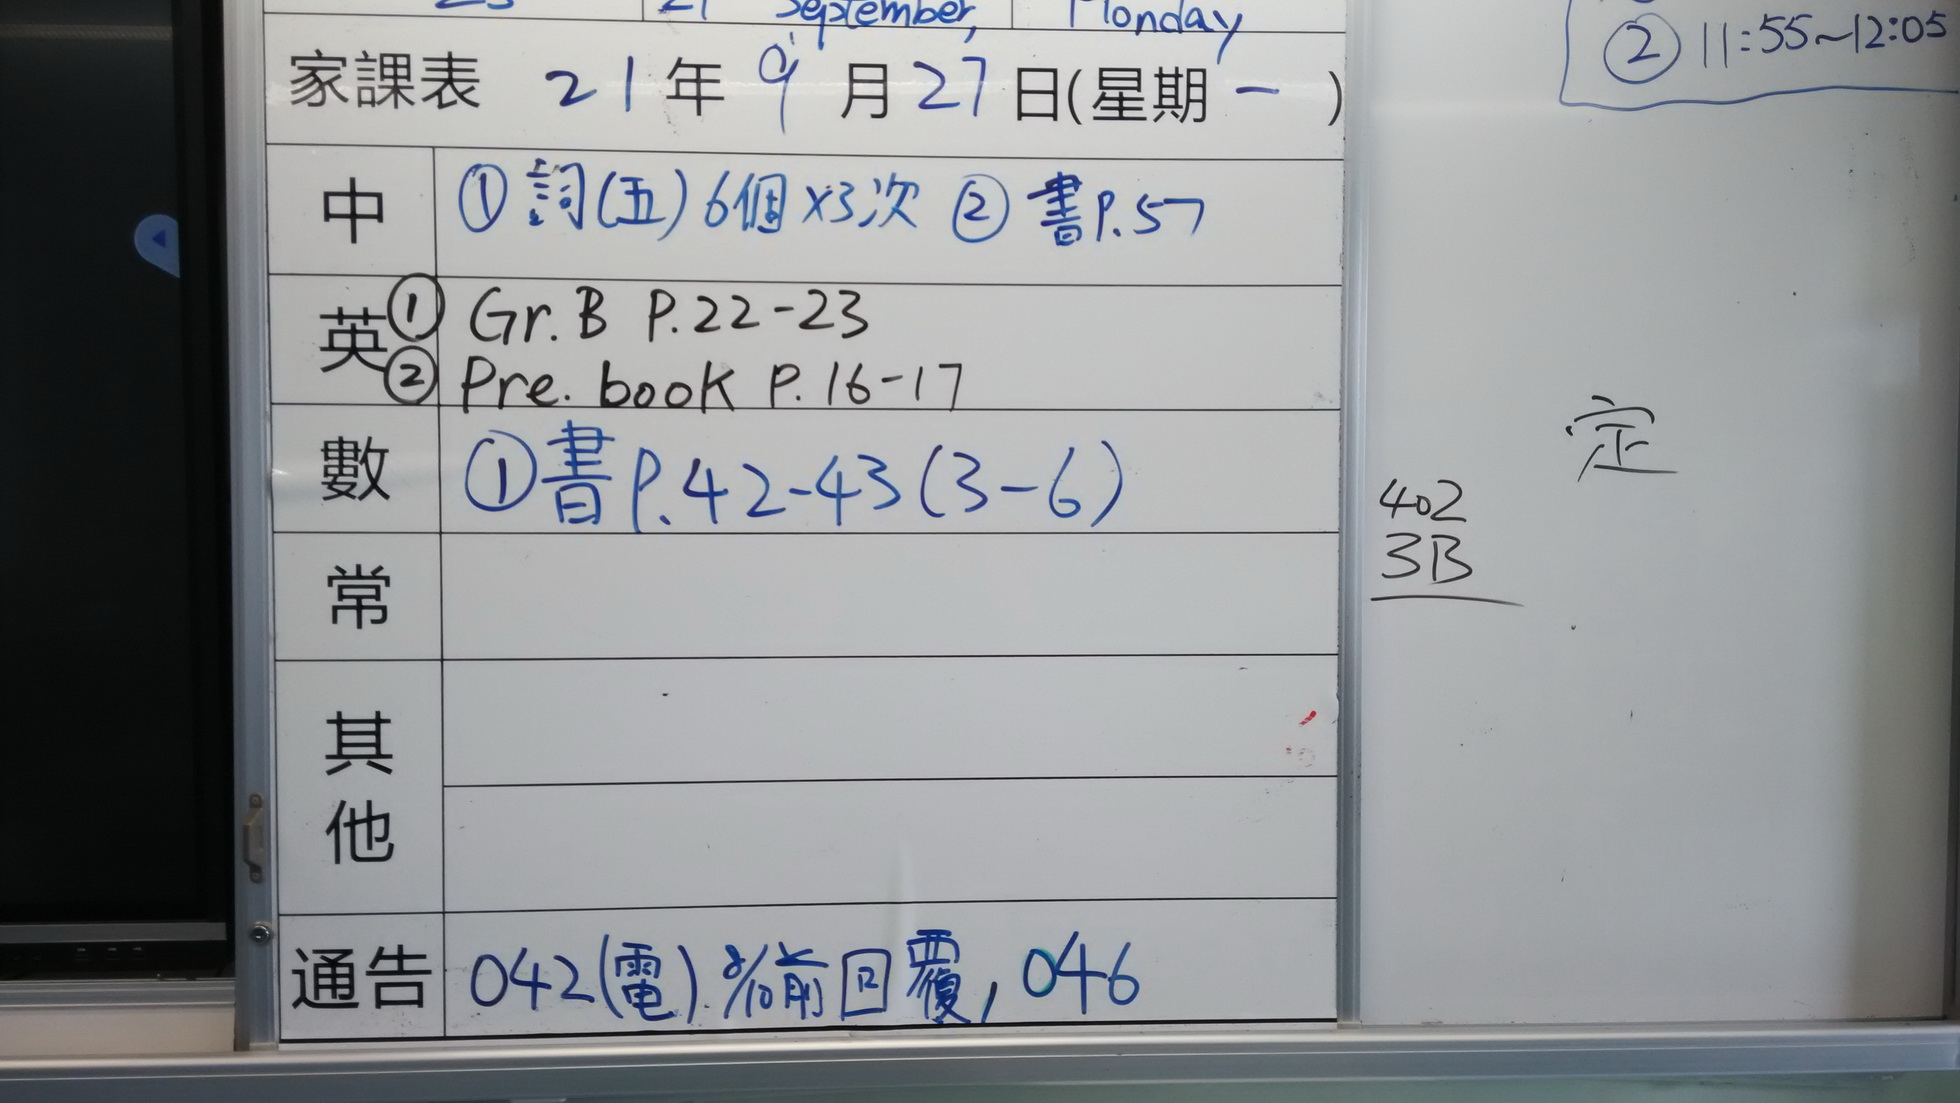 September, Monday
② 11:55~12:05
家課表 21年9月27日(星期一)
中 ①詞(五)6個x3次 ②書P.57
英 ① Gr.B P.22-23
② Pre. book P.16-17
數 ①書P.42-43(3-6)
常
其他
通告 042(電). 8/10前回覆, 046
定
402
3B